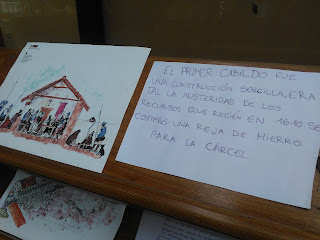 EL PRIMER CABILDO FUE
UNA CONSTRUCCIÓN SENCILLA, ERA
TAL LA AUSTERIDAD DE LOS
RECURSOS QUE RECIEN EN 1610 SE
COMPRÓ UNA REJA DE HIERRO
PARA LA CÁRCEL.